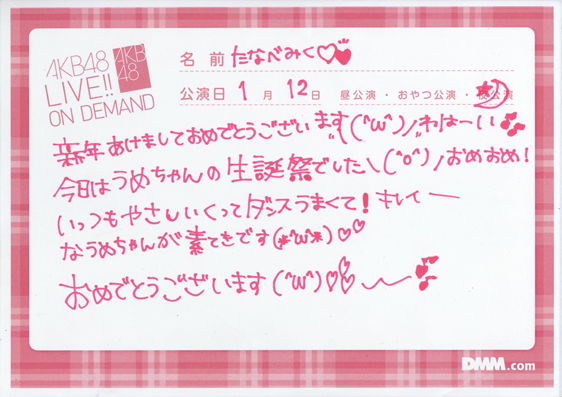 AKB48
LIVE!!
ON DEMAND
AKB
48
名前 たなべみく♡
公演日 1月12日 昼公演・おやつ公演・夜公演
新年あけましておめでとうございます\(^ω^)/わはーい♫
今日はうめちゃんの生誕祭でした\(^o^)/おめおめ!
いっつもやさしいくってダンスうまくて!キレイー
なうめちゃんが素てきです(*^ω^*)♡♡
おめでとうございます(^ω^)♡♡〜♫
DMM.com